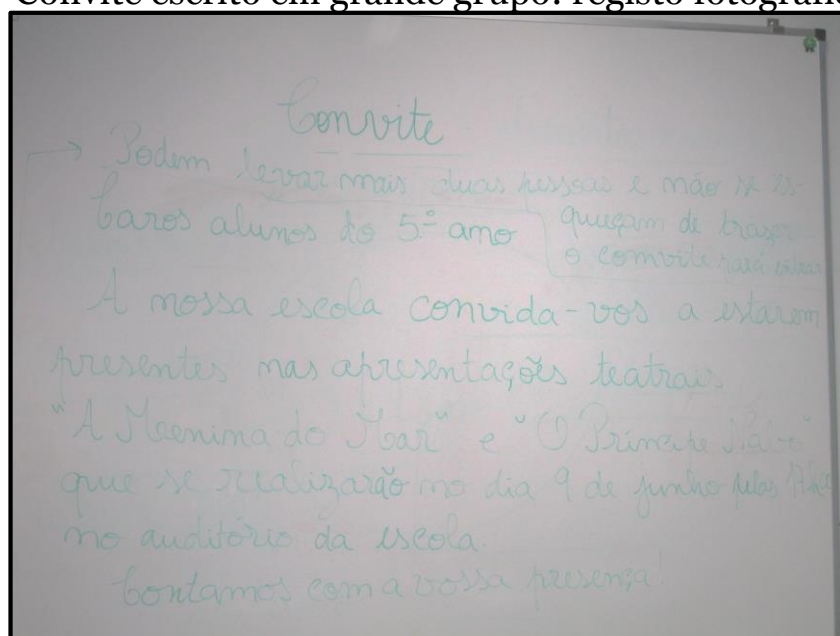 Convite escrito em grande grupo: registo fotográfi
Convite
→ Podem levar mais duas pessoas e não se es-
Caros alunos do 5.º ano
queçam de trazer
o convite para entrar
A nossa escola convida-vos a estarem
presentes nas apresentações teatrais
"A Menina do Mar" e "O Príncipe Nabo"
que se realizarão no dia 9 de junho pelas
no auditório da escola.
Contamos com a vossa presença!